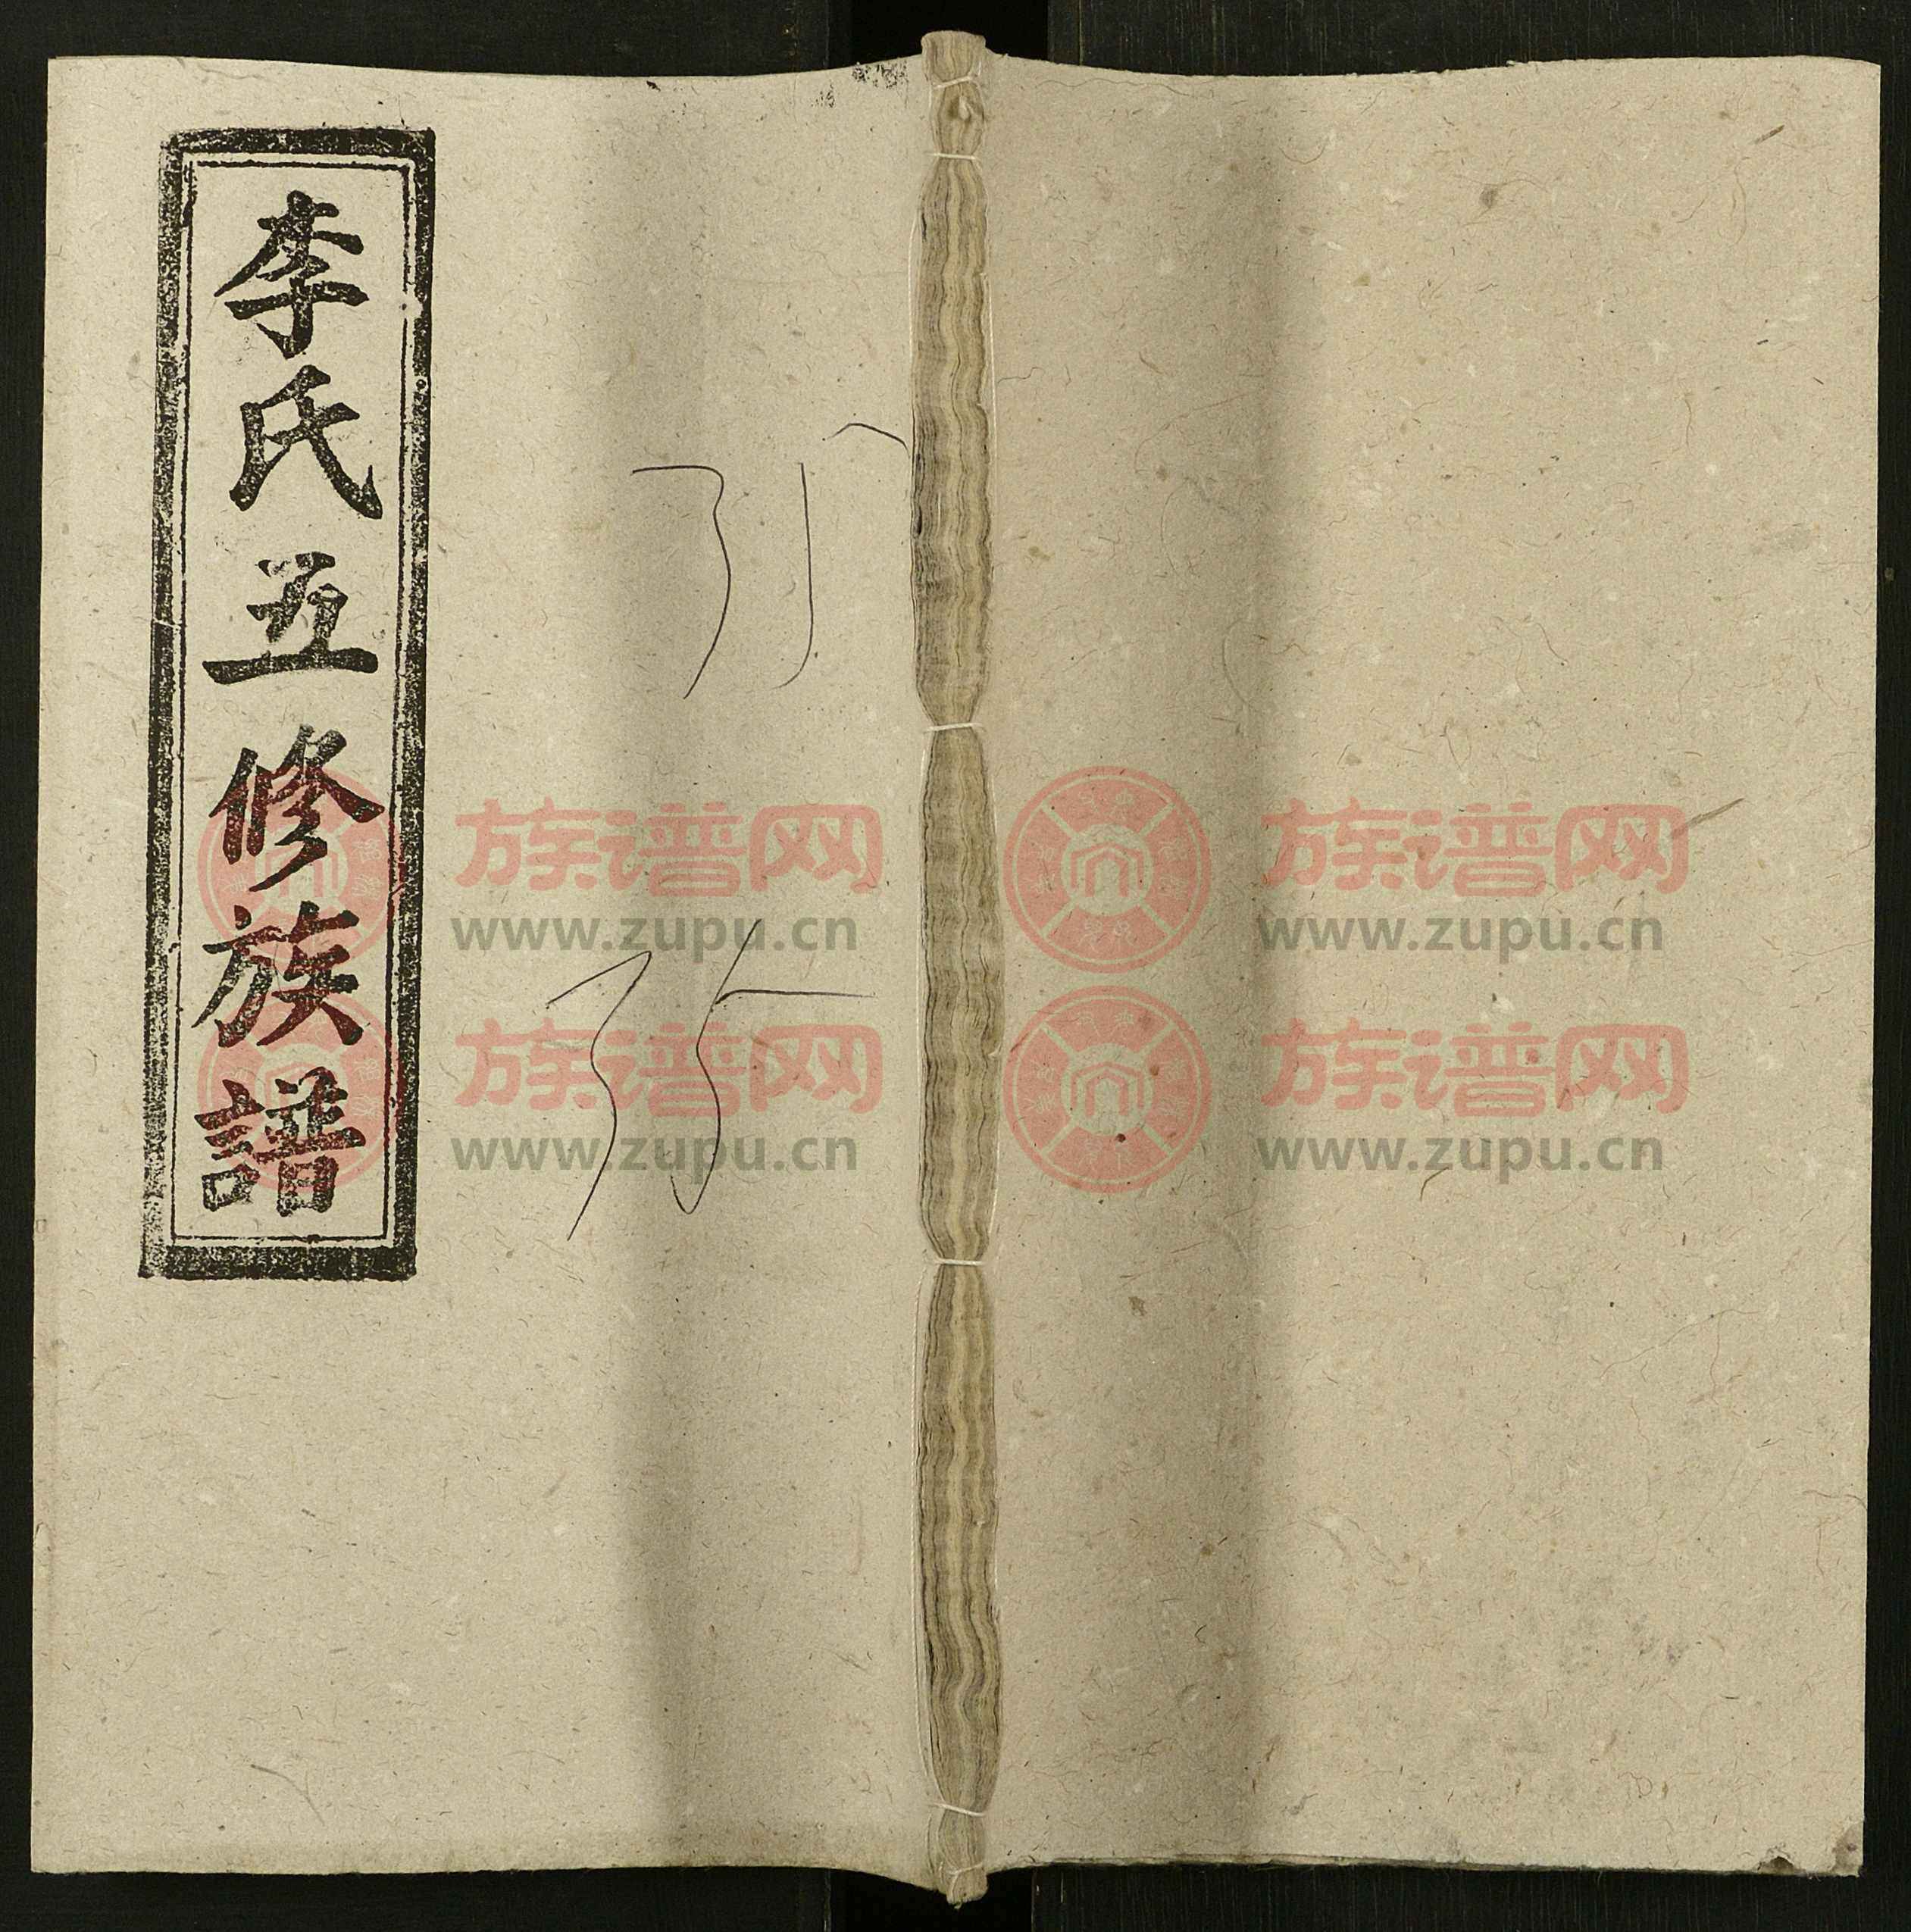 李氏五修族譜
35
35
族谱网 族谱网
www.zupu.cn www.zupu.cn
族谱网 族谱网
www.zupu.cn www.zupu.cn